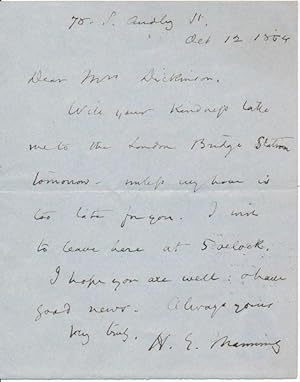 78. S. Audley St.
Oct 12 1854
Dear Mrs Dickinson.
Will your Kindness take
me to the London Bridge Station
tomorrow. unless my hour is
too late for you. I wish
to leave here at 5 oclock.
I hope you are well: & have
good news. Always yours
Very truly.
H. E. Manning